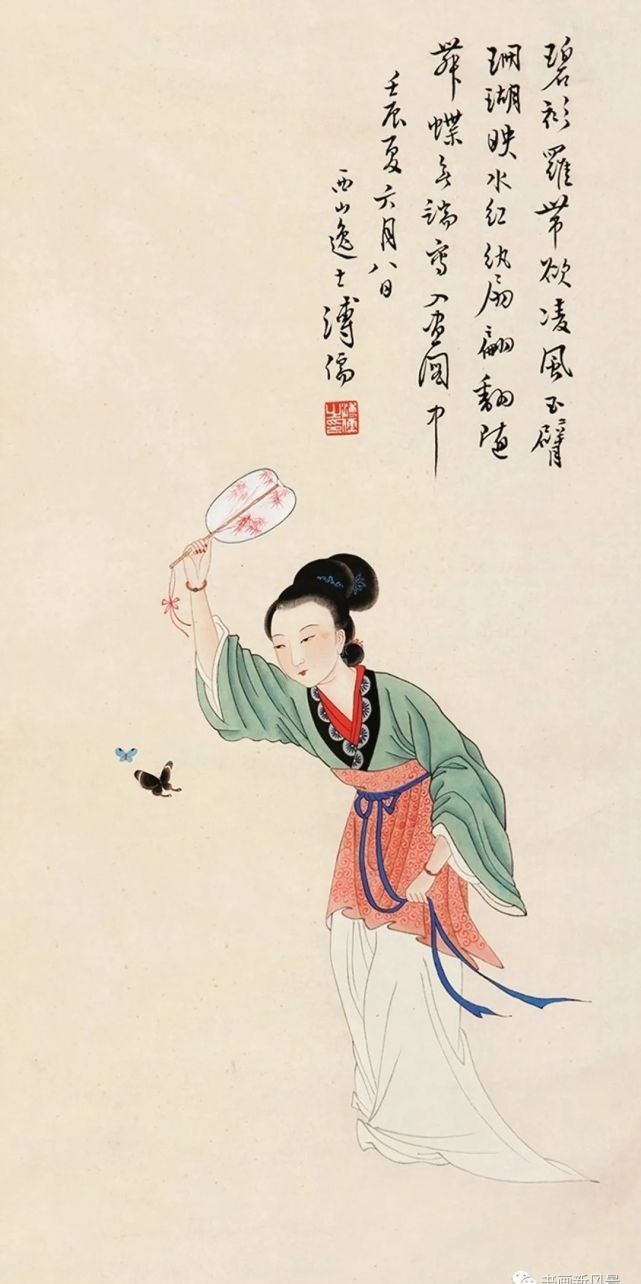 碧衫羅帶欲凌風玉臂
珊瑚映水紅紈扇翩翻随
舞蝶無端寫入畫圖中
壬辰夏六月八日
西山逸士溥儒
溥儒之印
书画新风景